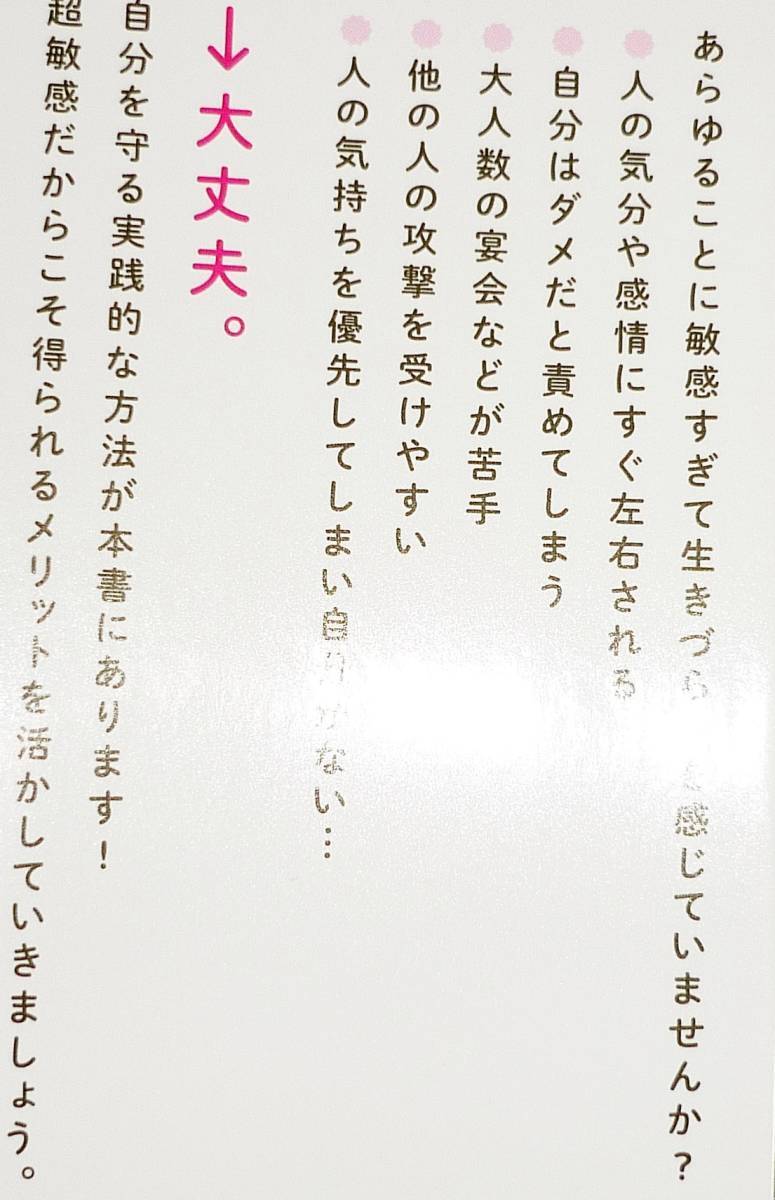 あらゆることに敏感すぎて生きづら を感じていませんか？
●人の気分や感情にすぐ左右される
●自分はダメだと責めてしまう
●大人数の宴会などが苦手
●他の人の攻撃を受けやすい
●人の気持ちを優先してしまい自分がない…
→大丈夫。
自分を守る実践的な方法が本書にあります！
超敏感だからこそ得られるメリットを活かしていきましょう。